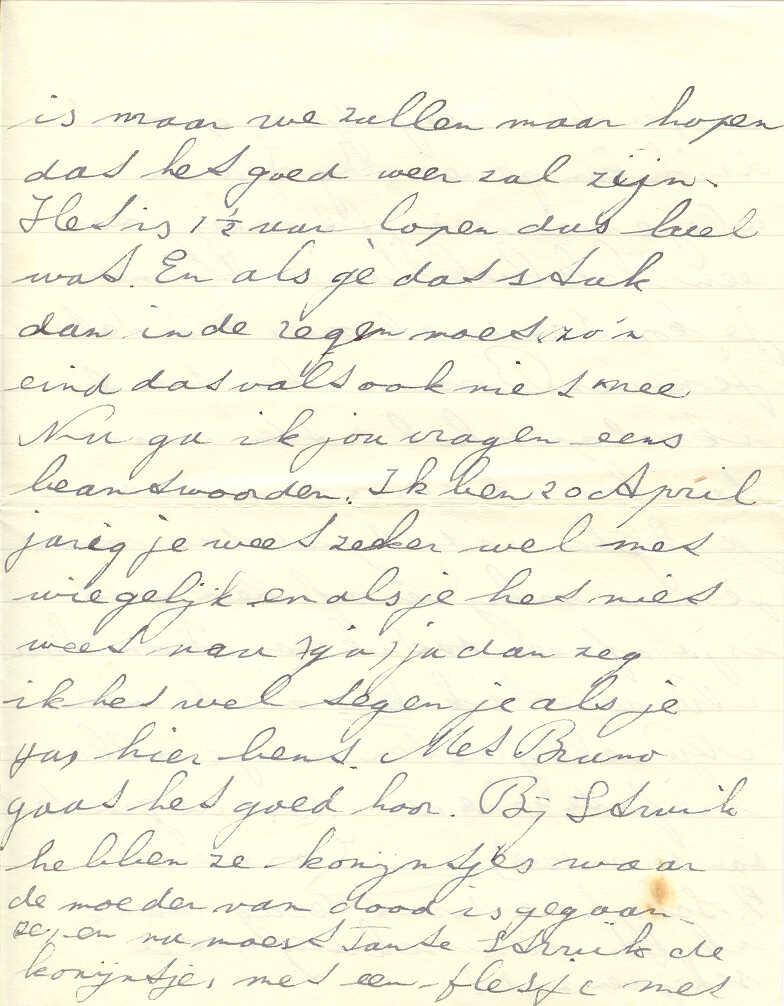 is maar we zullen maar hopen
dat het goed weer zal zijn.
Het is 1 ½ uur lopen dus heel
wat. En als ge dat stuk
dan in de regen moet zo'n
eind dat valt ook niet mee
Nu ga ik jou vragen eens
beantwoorden. Ik ben 20 April
jarig je weet zeker wel met
wie gelijk en als je het niet
weet nau ja, ja dan zeg
ik het wel tegen je als je
hier bent. Met Bruno
gaat het goed hoor. Bij Struik
hebben ze konijntjes waar
de moeder van dood is gegaan
ze, en nu moest Tante Struik de
konijntjes met een flesje met